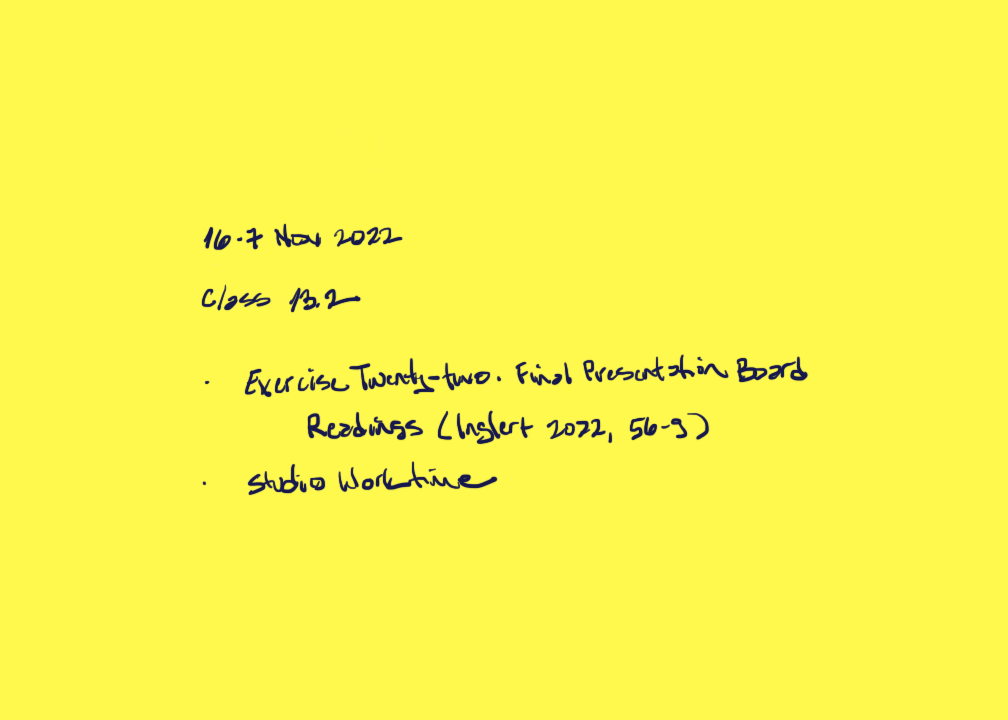 16-7 Nov 2022
Class 13.2
· Exercise Twenty-two. Final Presentation Board
Readings (Inglert 2022, 56-9)
· Studio Worktime